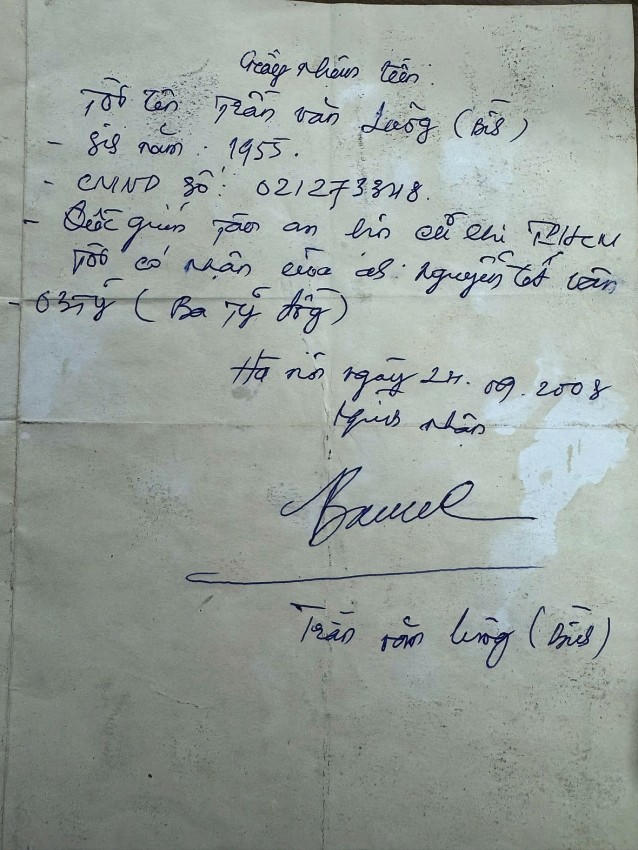 Giấy nhận tiền
Tôi tên Trần văn Lường (Bin)
- Sinh năm: 1955.
- CMND số: 021273348.
- Quốc gián Tân an hội củ chi TPHCM
Tôi có nhận của anh Nguyễn văn
- 03 Tỷ (Ba Tỷ đồng)
Hà nội ngày 24.09.2008
Người nhận
Trần văn Lường (Bin)